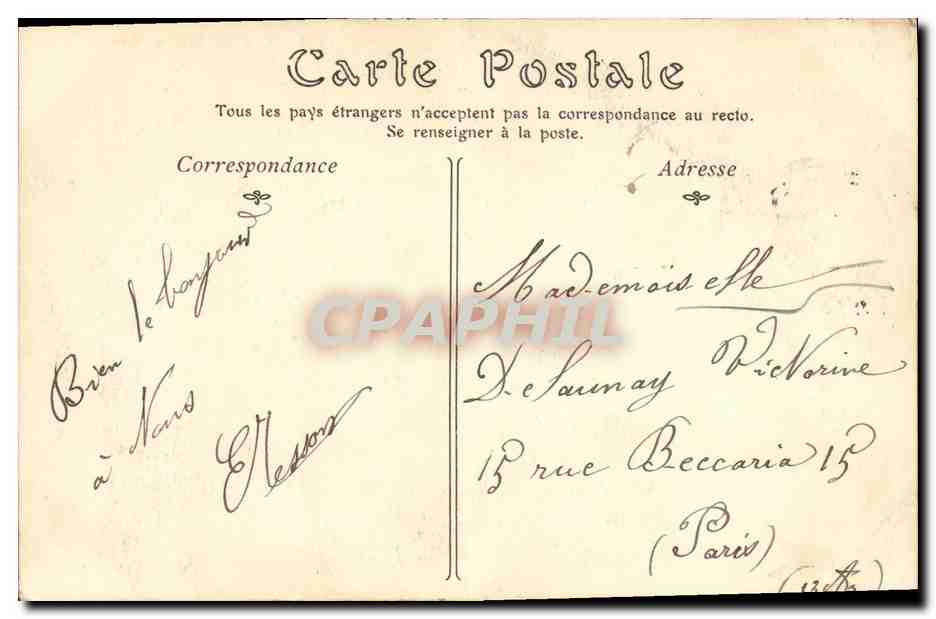 Carte Postale
Tous les pays étrangers n'acceptent pas la correspondance au recto.
Se renseigner à la poste.
Correspondance
Bien le bonjour
à Vous
Adresse
Mademoiselle
DeSaunay Victorine
15 rue Beccaria 15
(Paris)
CPAPHIL